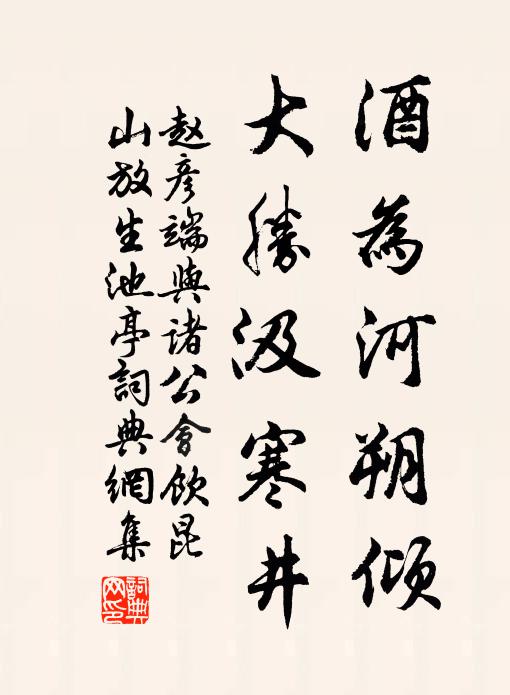 酒為河朔傾
大勝汲寒井
赵彥端與诸公會飲昆
山放生池亭詞典網集
詞典網印